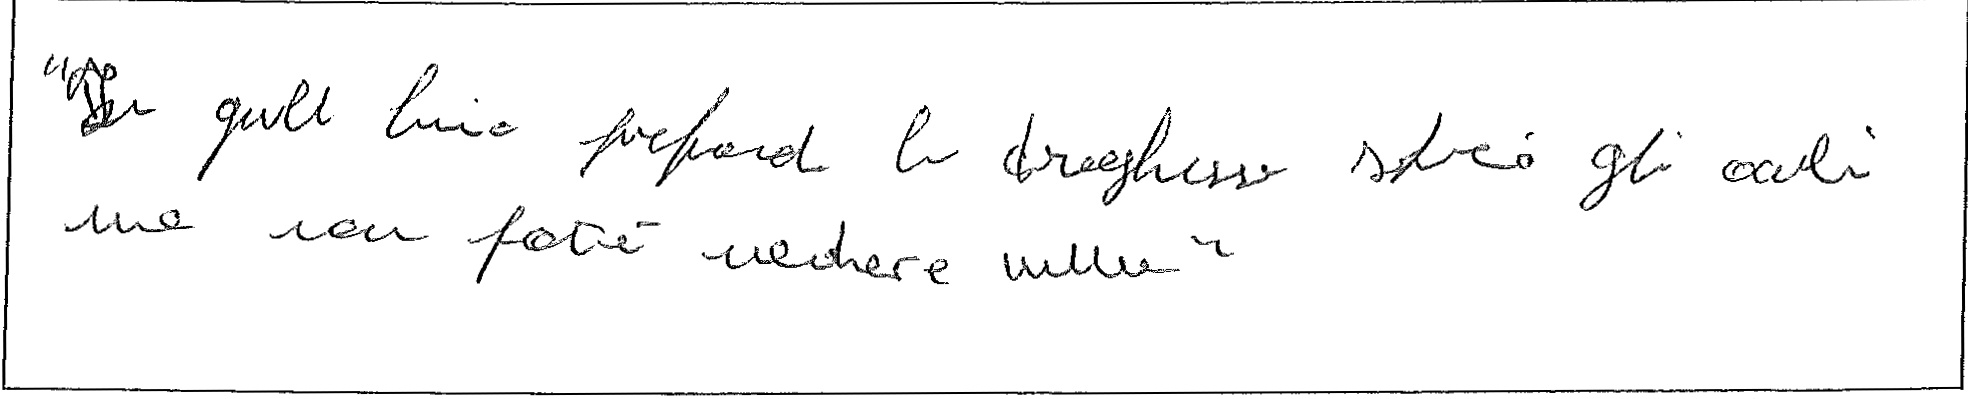 "In quel buio profond la draghessa sbarrò gli occhi
ma non poté vedere nulla"